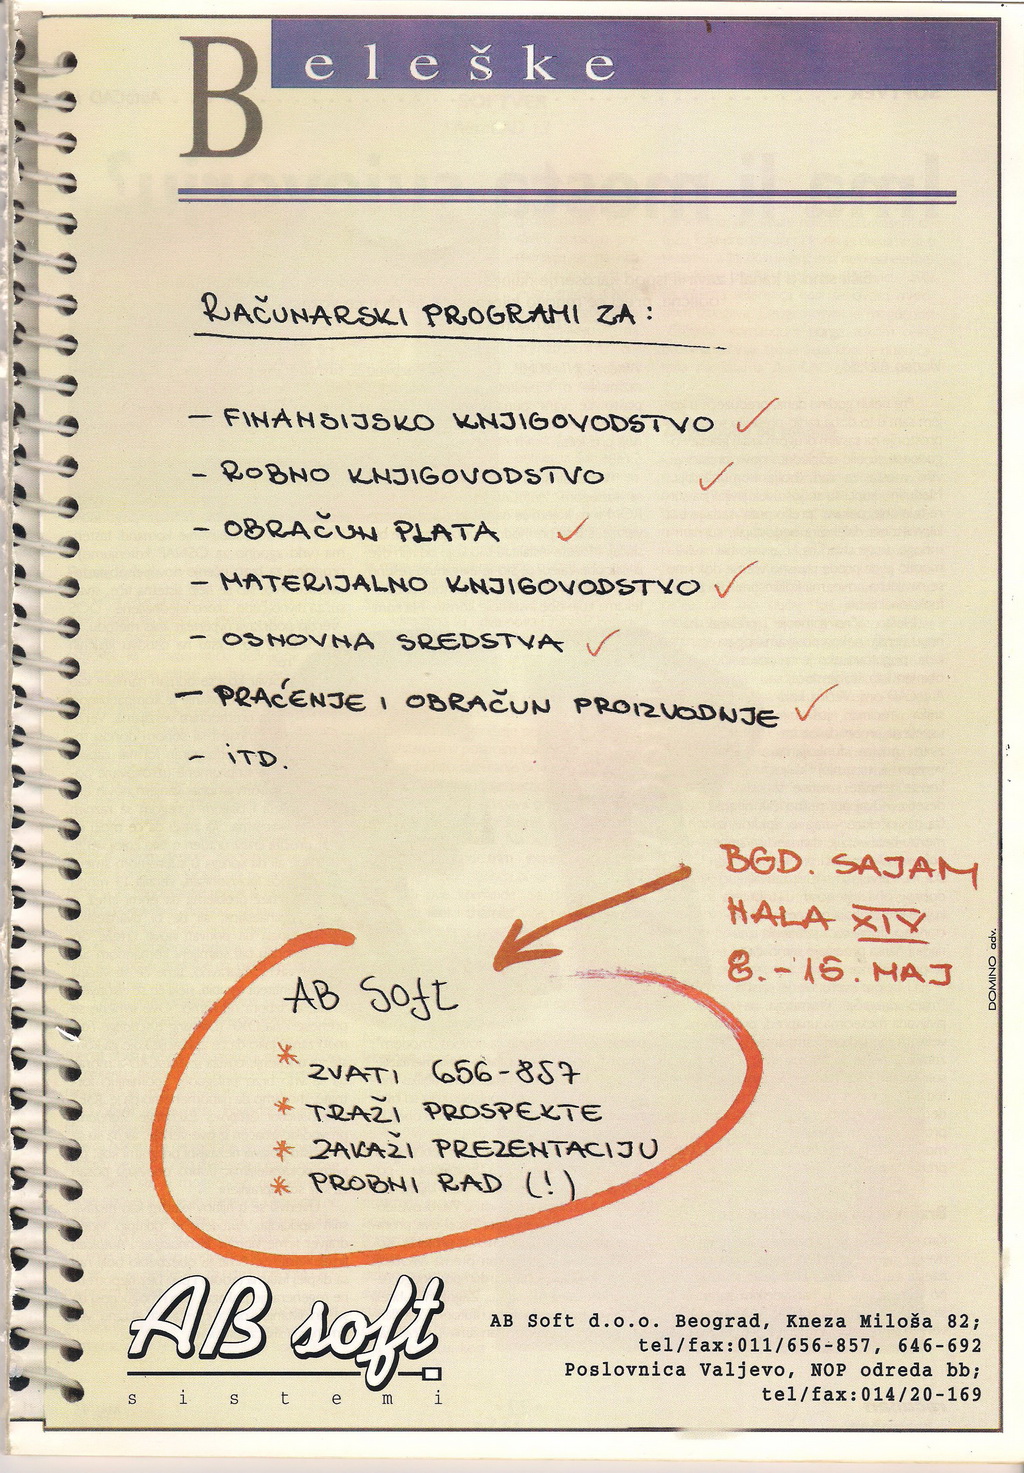 Beleške
RAČUNARSKI PROGRAMI ZA:
- FINANSIJSKO KNJIGOVODSTVO ✓
- ROBNO KNJIGOVODSTVO ✓
- OBRAČUN PLATA ✓
- MATERIJALNO KNJIGOVODSTVO ✓
- OSNOVNA SREDSTVA ✓
- PRAĆENJE I OBRAČUN PROIZVODNJE ✓
- ITD.
BGD. SAJAM
HALA XIV
8.-15. MAJ
DOMINO adv.
AB Soft
* ZVATI 656-857
* TRAŽI PROSPEKTE
* ZAKAŽI PREZENTACIJU
* PROBNI RAD (!)
AB soft
sistemi
AB Soft d.o.o. Beograd, Kneza Miloša 82;
tel/fax:011/656-857, 646-692
Poslovnica Valjevo, NOP odreda bb;
tel/fax:014/20-169